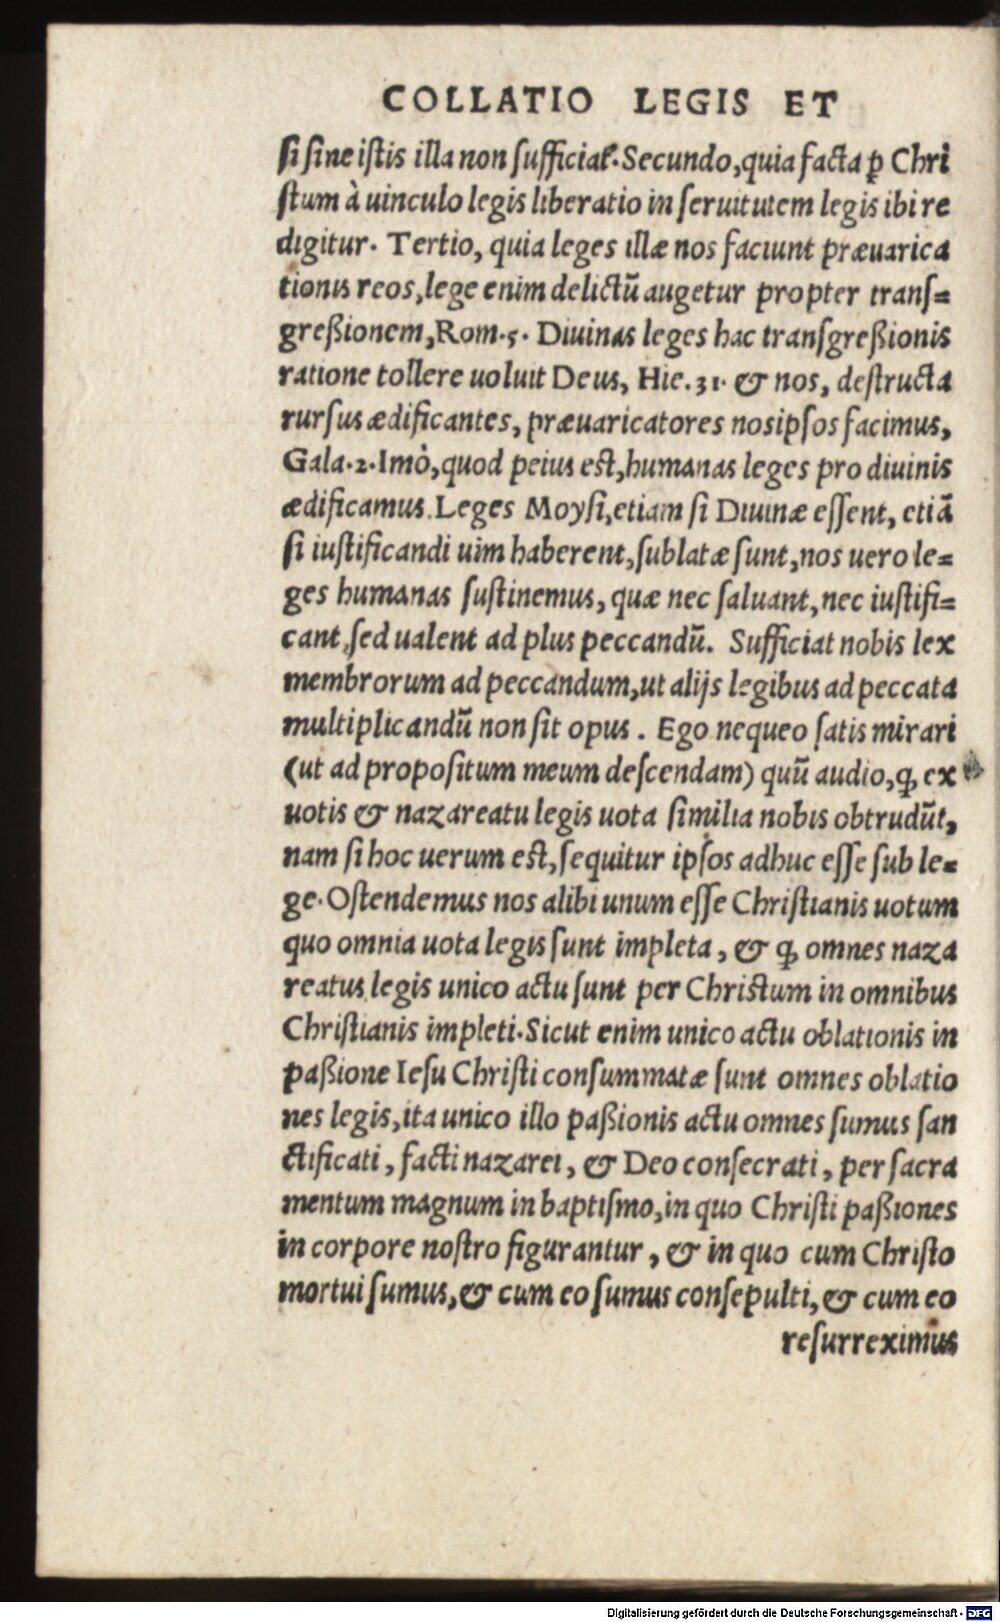 COLLATIO LEGIS ET
si sine istis illa non sufficiat. Secundo, quia facta ꝑ Chri
stum à uinculo legis liberatio in seruitutem legis ibi re
digitur. Tertio, quia leges illæ nos faciunt præuarica
tionis reos, lege enim delictũ augetur propter trans=
greßionem, Rom. 5. Diuinas leges hac transgreßionis
ratione tollere uoluit Deus, Hie. 31. & nos, destructa
rursus ædificantes, præuaricatores nosipsos facimus,
Gala. 2. Imò, quod peius est, humanas leges pro diuinis
ædificamus. Leges Moysi, etiam si Diuinæ essent, etiã
si iustificandi uim haberent, sublatæ sunt, nos uero le=
ges humanas sustinemus, quæ nec saluant, nec iustifi=
cant, sed ualent ad plus peccandũ. Sufficiat nobis lex
membrorum ad peccandum, ut alijs legibus ad peccata
multiplicandũ non sit opus. Ego nequeo satis mirari
(ut ad propositum meum descendam) quũ audio, ꝙ ex
uotis & nazareatu legis uota similia nobis obtrudũt,
nam si hoc uerum est, sequitur ipsos adhuc esse sub le=
ge. Ostendemus nos alibi unum esse Christianis uotum
quo omnia uota legis sunt impleta, & ꝙ omnes naza
reatus legis unico actu sunt per Christum in omnibus
Christianis impleti. Sicut enim unico actu oblationis in
paßione Iesu Christi consummatæ sunt omnes oblatio
nes legis, ita unico illo paßionis actu omnes sumus san
ctificati, facti nazarei, & Deo consecrati, per sacra
mentum magnum in baptismo, in quo Christi paßiones
in corpore nostro figurantur, & in quo cum Christo
mortui sumus, & cum eo sumus consepulti, & cum eo
resurreximus
Digitalisierung gefördert durch die Deutsche Forschungsgemeinschaft - DFG